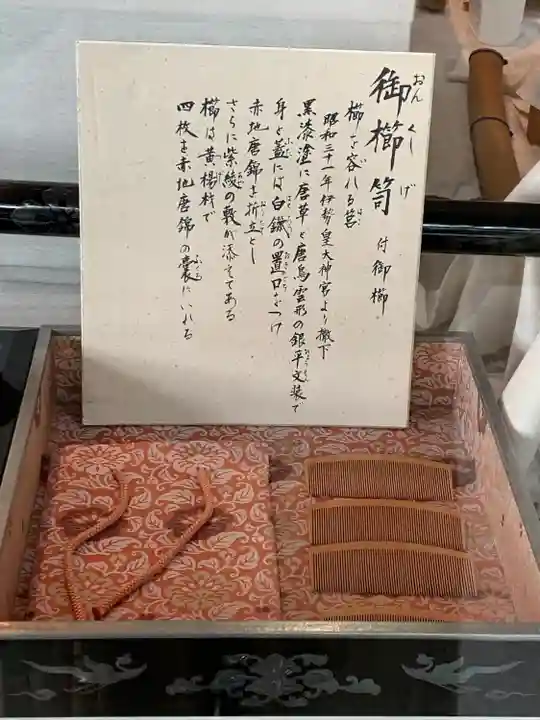 御櫛笥 付御櫛
おん くし げ
櫛を容れる筥
はこ
昭和三十一年伊勢皇大神宮より撤下
黒漆塗に唐草と唐鳥雲形の銀平文装で
身と蓋には白鑞の置口をつけ
ふた おきぐち
赤地唐錦を折立とし
さらに紫綾の敷が添えてある
櫛は黄楊材で
四枚を赤地唐錦の囊にいれる
ふくろ